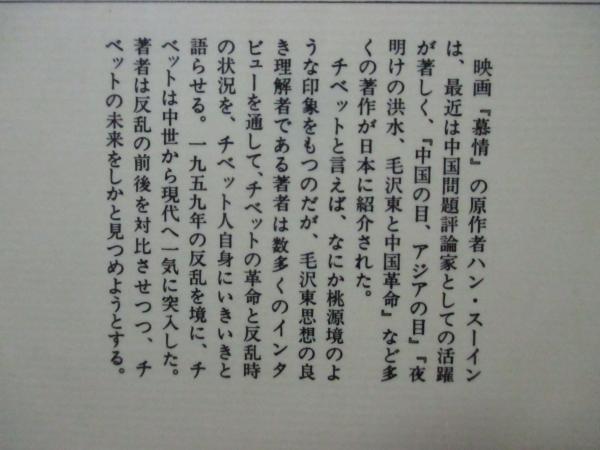 映画『慕情』の原作者ハン・スーイン
は、最近は中国問題評論家としての活躍
が著しく、『中国の目、アジアの目』『夜
明けの洪水、毛沢東と中国革命』など多
くの著作が日本に紹介された。
チベットと言えば、なにか桃源境のよ
うな印象をもつのだが、毛沢東思想の良
き理解者である著者は数多くのインタ
ビューを通して、チベットの革命と反乱時
の状況を、チベット人自身にいきいきと
語らせる。一九五九年の反乱を境に、チ
ベットは中世から現代へ一気に突入した。
著者は反乱の前後を対比させつつ、チ
ベットの未来をしかと見つめようとする。